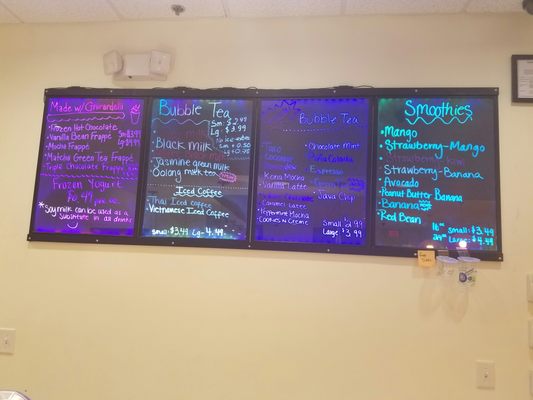 Made w/ Ghirardelli
Frozen Hot Chocolate
Vanilla Bean Frappé
Mocha Frappé
Matcha Green Tea Frappé
Triple Chocolate Frappé
Sm $3.99
Lg $4.99
Frozen Yogurt
*Soy milk can be used as a
substitute in all drinks
Bubble Tea
Sm: $2.99
Lg: $3.99
No ice-add:
Sm +0.50
Black Milk
Jasmine green milk
Oolong milk tea
Iced Coffee
Thai Iced Coffee
Vietnamese Iced Coffee
small: $3.49 Lg - 4.49
Bubble Tea
Taro
Coconut
Kona Mocha
Vanilla Latte
Caramel Latte
Peppermint Mocha
Cookies n Creme
Chocolate Mint
Piña Colada
Espresso
Java Chip
Small: $2.99
Large: $3.99
Smoothies
Mango
Strawberry-Mango
Strawberry-Kiwi
Strawberry-Banana
Avocado
Peanut Butter Banana
Banana
Red Bean
16oz small: $3.49
24oz Large: $4.49